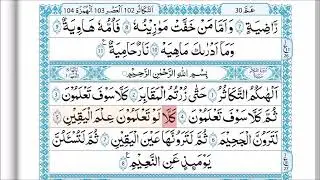 عم 30
التكاثر 102 العصر 103 الهمزة 104
رَّاضِيَةٍ ۝ وَأَمَّا مَنْ خَفَّتْ مَوَٰزِينُهُۥ ۝ فَأُمُّهُۥ هَاوِيَةٌ ۝
وَمَآ أَدْرَىٰكَ مَاهِيَهْ ۝ نَارٌ حَامِيَةٌۢ ۝
بِسْمِ ٱللَّهِ ٱلرَّحْمَٰنِ ٱلرَّحِيمِ
أَلْهَىٰكُمُ ٱلتَّكَاثُرُ ۝ حَتَّىٰ زُرْتُمُ ٱلْمَقَابِرَ ۝ كَلَّا سَوْفَ تَعْلَمُونَ ۝
ثُمَّ كَلَّا سَوْفَ تَعْلَمُونَ ۝ كَلَّا لَوْ تَعْلَمُونَ عِلْمَ ٱلْيَقِينِ ۝
لَتَرَوُنَّ ٱلْجَحِيمَ ۝ ثُمَّ لَتَرَوُنَّهَا عَيْنَ ٱلْيَقِينِ ۝ ثُمَّ لَتُسْـَٔلُنَّ
يَوْمَئِذٍ عَنِ ٱلنَّعِيمِ ۝